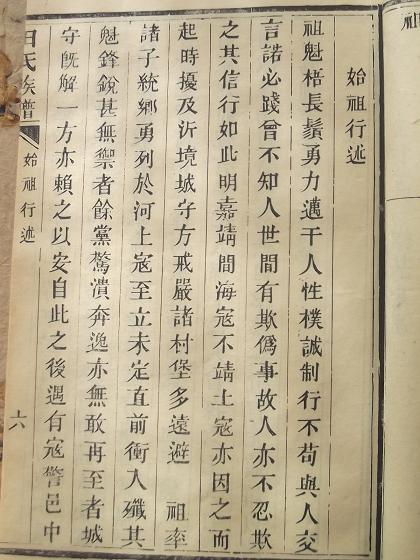 始祖行述
祖魁梧長鬚勇力邁千人性樸誠制行不苟與人交
言諾必踐曾不知人世間有欺僞事故人亦不忍欺
之其信行如此明嘉靖間海寇不靖土寇亦因之而
起時擾及沂境城守方戒嚴諸村堡多遠避　祖率
諸子統鄉勇列於河上寇至立未定直前衝入殲其
魁鋒銳甚無禦者餘黨驚潰奔逸亦無敢再至者城
守旣解一方亦賴之以安自此之後遇有寇警邑中
田氏族譜
始祖行述
六